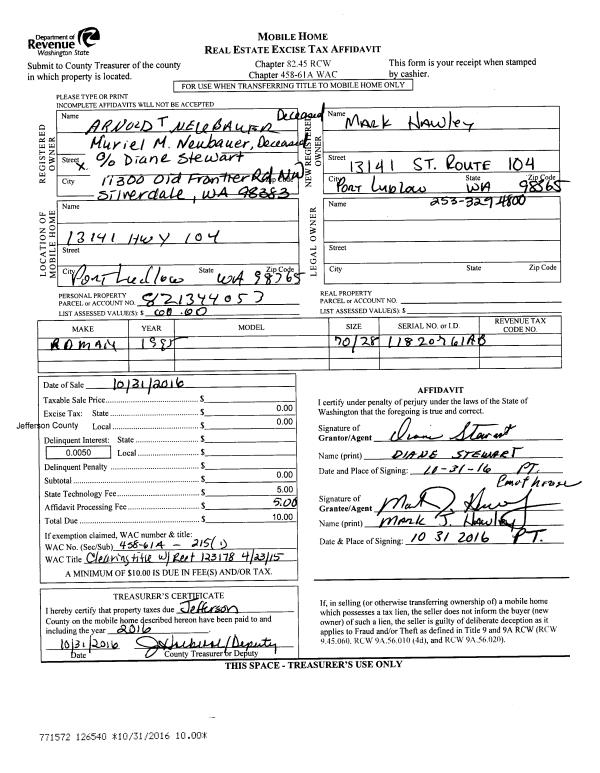 Department of
Revenue
Washington State
MOBILE HOME
REAL ESTATE EXCISE TAX AFFIDAVIT
Submit to County Treasurer of the county
in which property is located.
Chapter 82.45 RCW
Chapter 458-61A WAC
This form is your receipt when stamped
by cashier.
FOR USE WHEN TRANSFERRING TITLE TO MOBILE HOME ONLY
PLEASE TYPE OR PRINT
INCOMPLETE AFFIDAVITS WILL NOT BE ACCEPTED
REGISTERED
OWNER
Name
Deceased
ARNOLD T NEUBAUER
Muriel M. Neubauer, Deceased
Street X. c/o Diane Stewart
City 17300 Old Frontier Rd NW Zip Code
Silverdale, WA 98383
NEW REGISTERED
OWNER
Name
Mark Hawley
Street
13141 ST. ROUTE 104
City State Zip Code
Port Ludlow WA 98365
LOCATION OF
MOBILE HOME
Name
13141 HWY 104
Street
City Port Ludlow State WA Zip Code 98365
LEGAL OWNER
Name 253-329-4800
Street
City State Zip Code
PERSONAL PROPERTY
PARCEL or ACCOUNT NO. 821344053
LIST ASSESSED VALUE(S): $
REAL PROPERTY
PARCEL or ACCOUNT NO.
LIST ASSESSED VALUE(S): $
MAKE YEAR MODEL SIZE SERIAL NO. or I.D. REVENUE TAX
CODE NO.
ROMAN 1985 70/28 11820761AB
Date of Sale 10/31/2016
Taxable Sale Price $
Excise Tax: State $ 0.00
Jefferson County Local $ 0.00
Delinquent Interest: State $
0.0050 Local $
Delinquent Penalty $
Subtotal $ 0.00
State Technology Fee $ 5.00
Affidavit Processing Fee $ 5.00
Total Due $ 10.00
If exemption claimed, WAC number & title:
WAC No. (Sec/Sub) 458-61A - 215(1)
WAC Title Clearing title w/ Reet 123178 4/23/15
A MINIMUM OF $10.00 IS DUE IN FEE(S) AND/OR TAX.
AFFIDAVIT
I certify under penalty of perjury under the laws of the State of
Washington that the foregoing is true and correct.
Signature of
Grantor/Agent Diane Stewart
Name (print) DIANE STEWART
Date and Place of Signing: 10-31-16 PT.
Courthouse
Signature of
Grantee/Agent Mark J. Hawley
Name (print) MARK J. Hawley
Date & Place of Signing: 10 31 2016 PT.
TREASURER'S CERTIFICATE
I hereby certify that property taxes due Jefferson
County on the mobile home described hereon have been paid to and
including the year 2016
10/31/2016 /Deputy
Date County Treasurer or Deputy
If, in selling (or otherwise transferring ownership of) a mobile home
which possesses a tax lien, the seller does not inform the buyer (new
owner) of such a lien, the seller is guilty of deliberate deception as it
applies to Fraud and/or Theft as defined in Title 9 and 9A RCW (RCW
9.45.060, RCW 9A.56.010 (4d), and RCW 9A.56.020).
THIS SPACE - TREASURER'S USE ONLY
771572 126540 *10/31/2016 10.00*